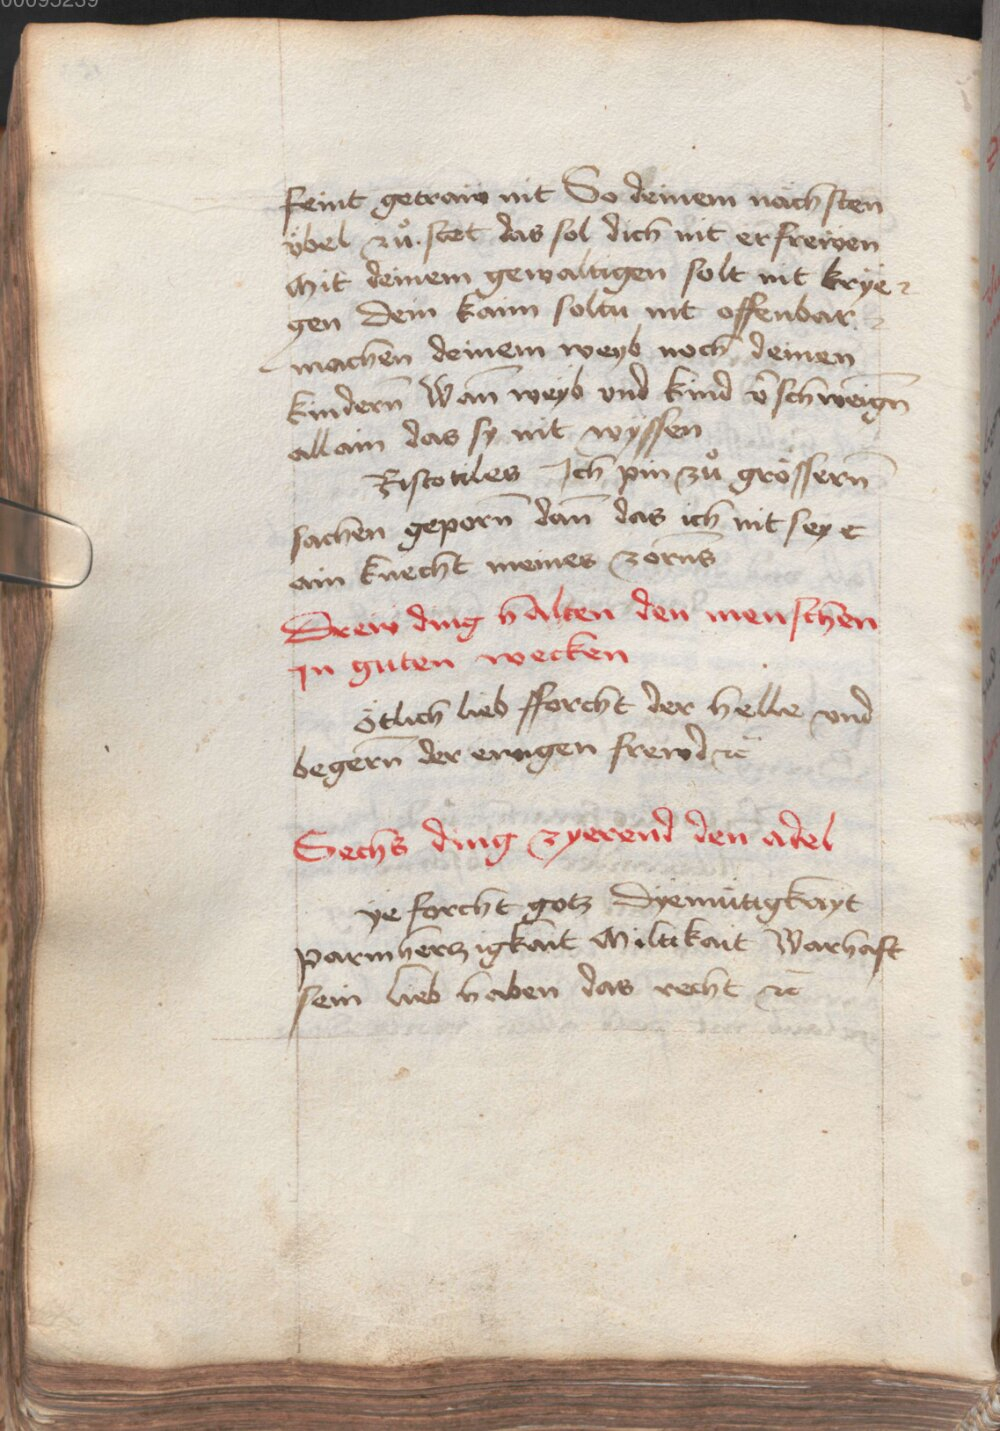 00095239
feint getraw nit So deinem nächsten
vbel zů stet das sol dich nit erfrewen
Mit deinem gewaltigen solt nit krye
gen Dein kaim soltu nit offenbar
machen deinem weyb noch deinen
kindern̄ Wan̄ weyb vnd kind v̄schweign̄
allain das sy nit wyssen
Ristotiles Ich pin zů grössern̄
sachen geporn̄ dan̄ das ich nit seye
ain knecht meines zorns
Drew ding halten den menschen
in guten wecken
ötlich lieb fforcht der helle vnd
begern̄ der ewigen frewd ⁊c̄
Sechs ding zyerend den adel
ye forcht gotz Dyemütigkayt
parmherzigkait Miltikait Warhaft
sein lieb haben das recht ⁊c̄